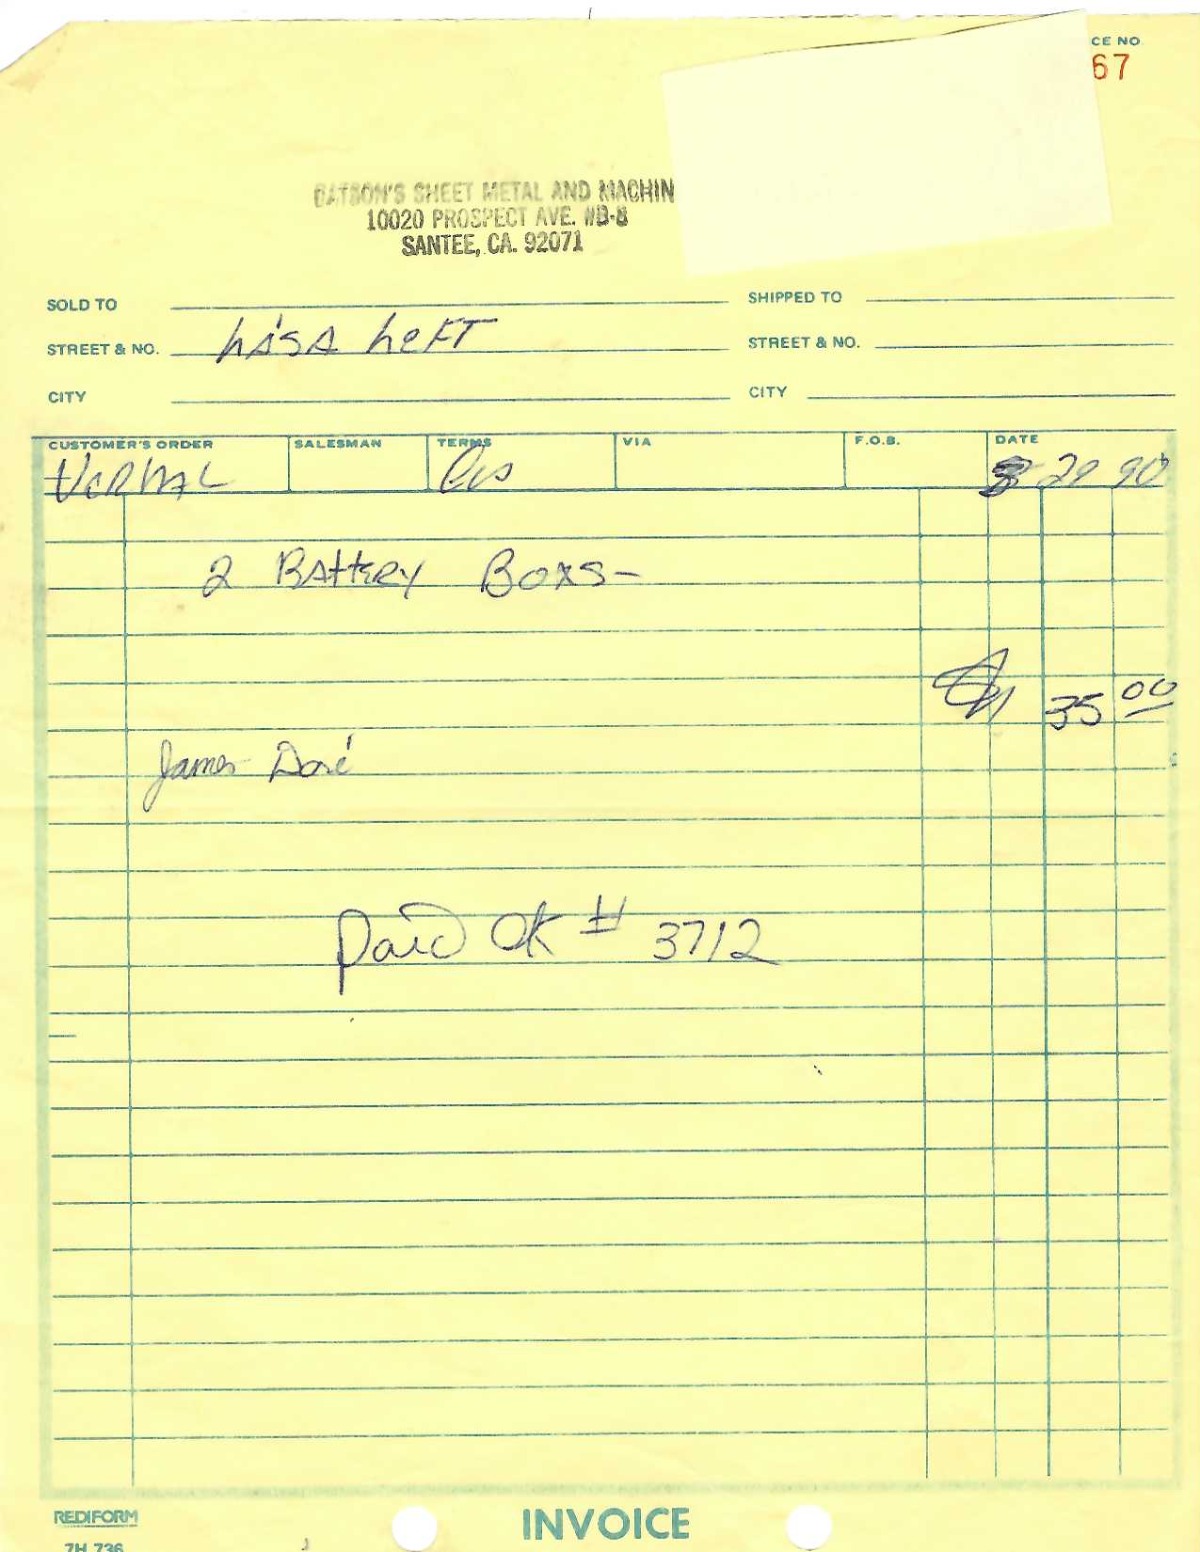 CE NO
67
BATSON'S SHEET METAL AND MACHIN
10020 PROSPECT AVE. #B-8
SANTEE, CA. 92071
SOLD TO
SHIPPED TO
STREET & NO. LiSA LeFT
STREET & NO.
CITY
CITY
CUSTOMER'S ORDER SALESMAN TERMS VIA F.O.B. DATE
VERBAL 29 90
2 BAttERY BOXS-
35 00
James Doré
Paid CK # 3712
REDIFORM
INVOICE
7H 736